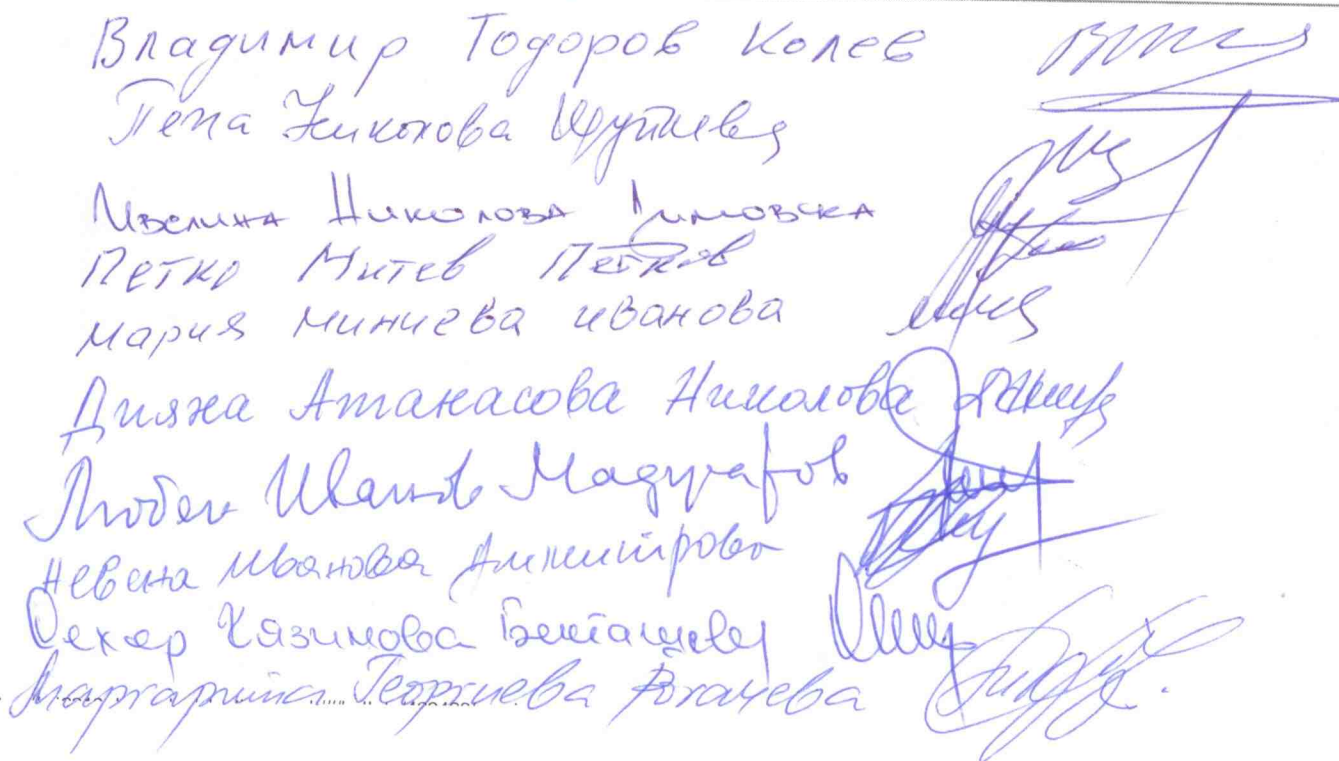 Владимир Тодоров Колев
Пепа Николова
Ивелина Николова Димовска
Петко Митев Петков
Мария Минчева Иванова
Диляна Атанасова Николова
Любен Иванов
Невена Иванова Димитрова
Сехер Кязимова Бекташева
Маргарита Георгиева